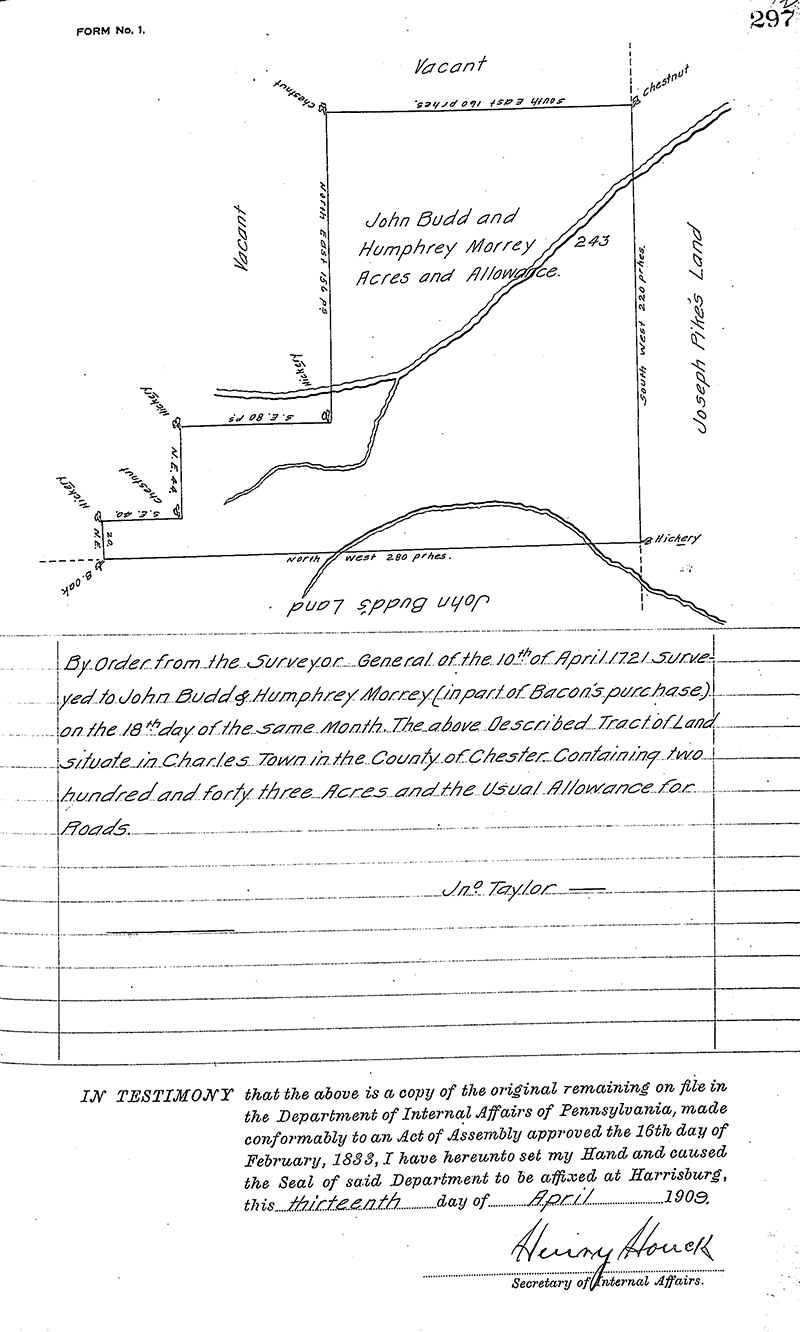 FORM No. 1.
297
Vacant
Chestnut
South East 160 prhes.
Chestnut
Vacant
North East 156 Ps
John Budd and
Humphrey Morrey 243
Acres and Allowance.
South West 220 prhes.
Joseph Pike's Land
Hickery
Hickery
S.E. 80 Ps
N.E. 44.
Hickery
Chestnut
S.E. 40.
N.E. 20.
B. Oak
North West 280 prhes.
Hickery
John Budd's Land
By Order from the Surveyor General of the 10th of April 1721 Surve-
yed to John Budd & Humphrey Morrey (in part of Bacon's purchase)
on the 18th day of the same Month. The above Described Tract of Land
situate in Charles Town in the County of Chester Containing two
hundred and forty three Acres and the Usual Allowance for
Roads.
Jno. Taylor
IN TESTIMONY that the above is a copy of the original remaining on file in
the Department of Internal Affairs of Pennsylvania, made
conformably to an Act of Assembly approved the 16th day of
February, 1833, I have hereunto set my Hand and caused
the Seal of said Department to be affixed at Harrisburg,
this thirteenth day of April 1909.
Henry Houck
Secretary of Internal Affairs.